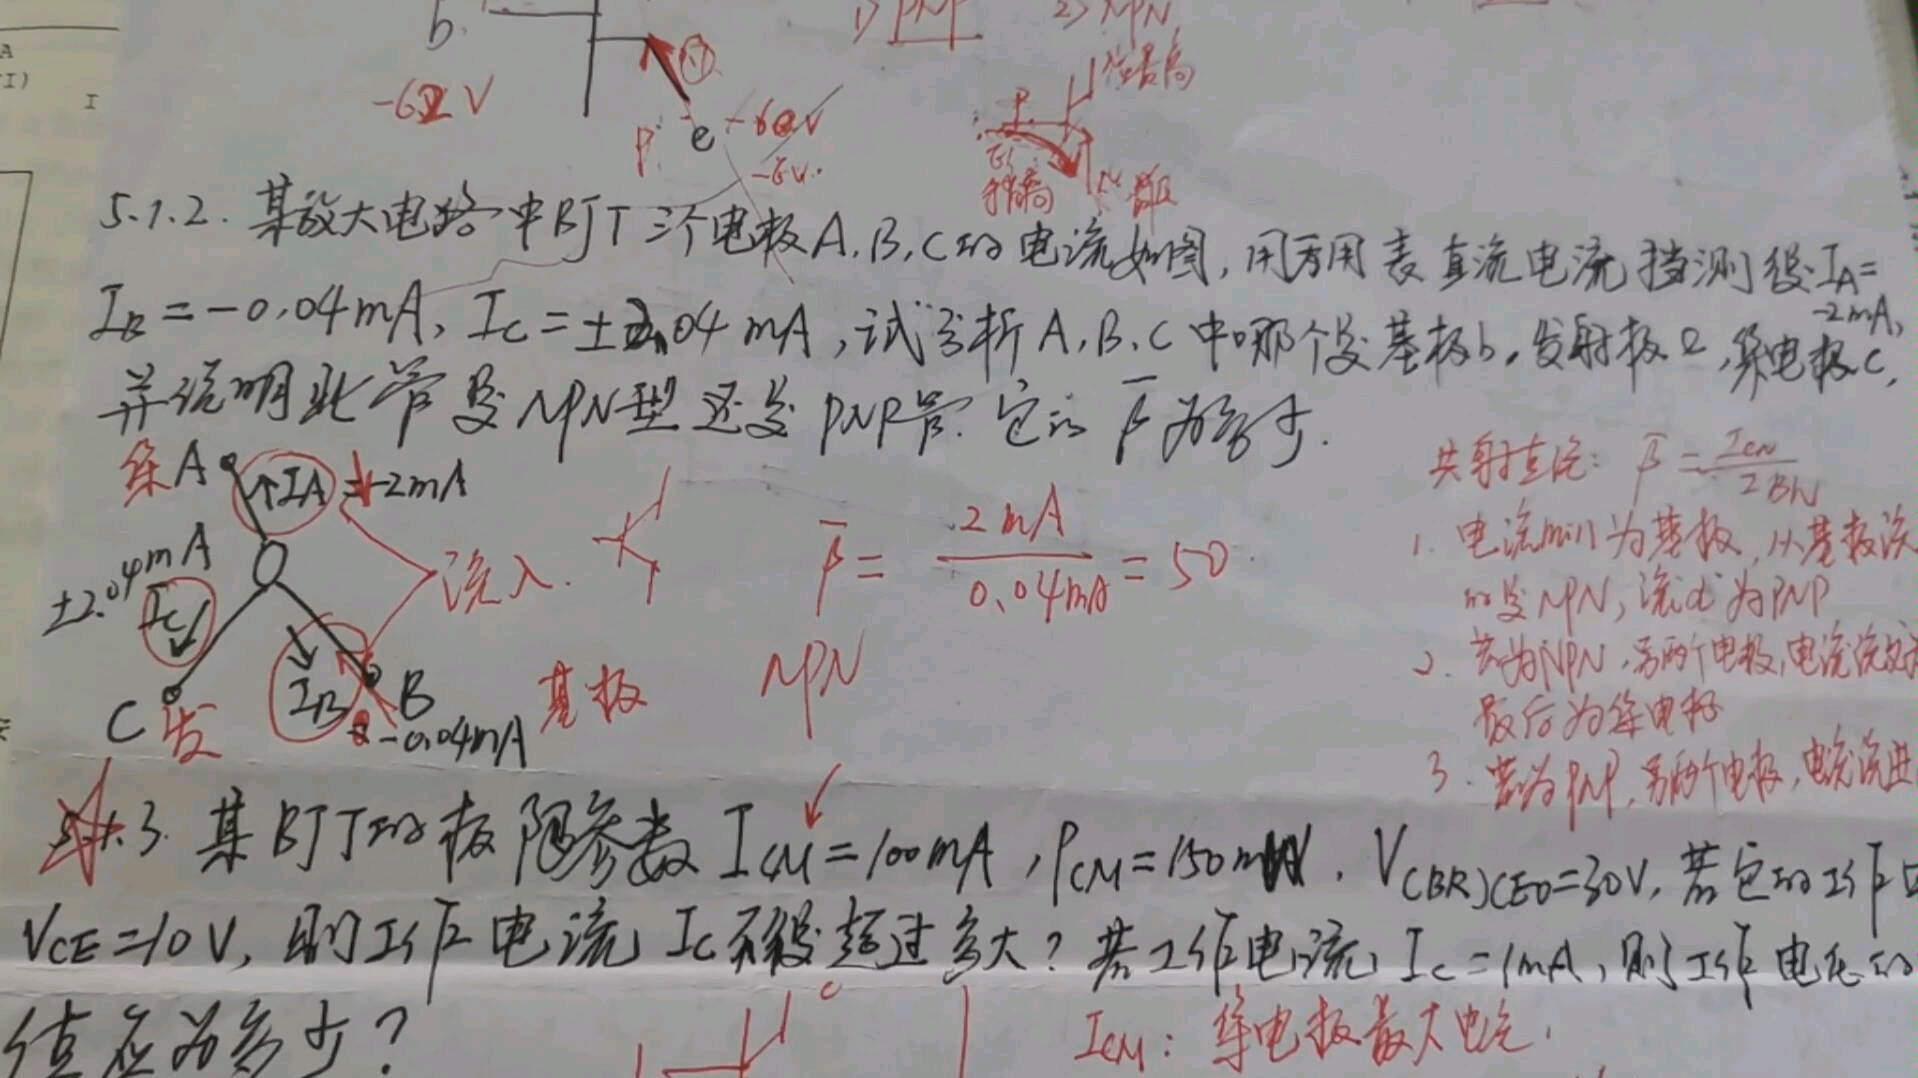 A
I)
I
b
1) PNP
2) NPN
-6.2V
P
e
-6V
5.1.2. 某放大电路中BJT三个电极A.B.C的电流如图,用万用表直流电流挡测得IA=
-2mA,
IB=-0.04mA, IC=±2.04mA,试分析A.B.C中哪个是基极b,发射极e,集电极C,
并说明此管是NPN型还是PNP管.它的β̄为多少.
集 A ↑IA=-2mA
±2.04mA
IC
流入.
C 发
IB
B
-0.04mA
基极
β̄=2mA/0.04mA=50
NPN
共射直流: β̄=ICN/IBN
1. 电流min为基极,从基极流
的是NPN,流出为PNP
2. 若为NPN,另两个电极,电流流
最后为集电极
3. 若为PNP,另两个电极,电流流进
5.1.3. 某BJT的极限参数ICM=100mA,PCM=150mW,V(BR)CEO=30V,若它的工作
VCE=10V,则工作电流IC不得超过多大?若工作电流IC=1mA,则工作电压的
值应为多少?
c
ICM:集电极最大电流.